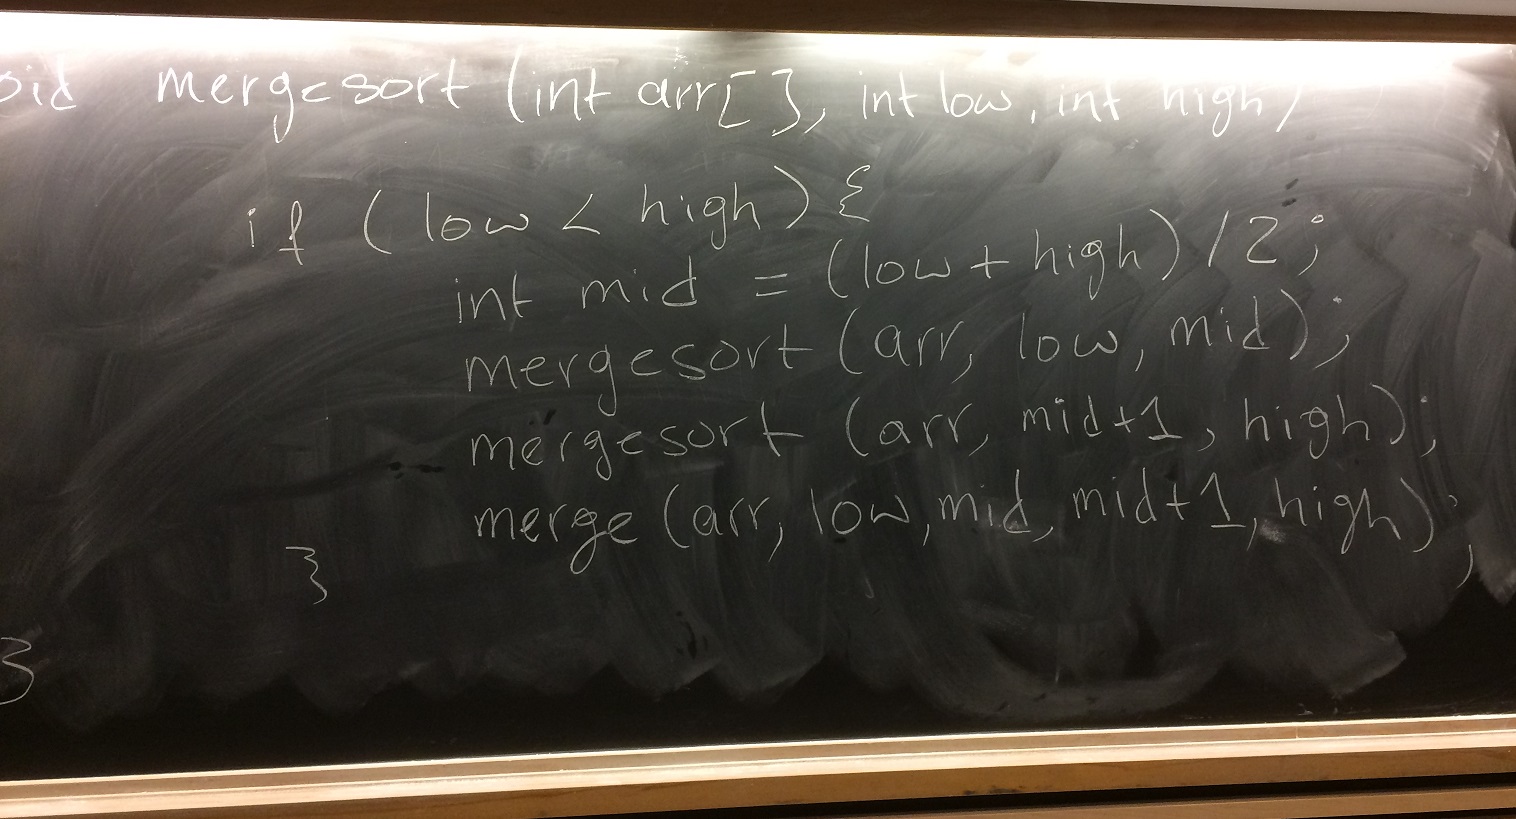 oid mergesort (int arr[], int low, int high)
if (low < high) {
int mid = (low + high) / 2;
mergesort (arr, low, mid);
mergesort (arr, mid+1, high);
merge (arr, low, mid, mid+1, high);
}
}